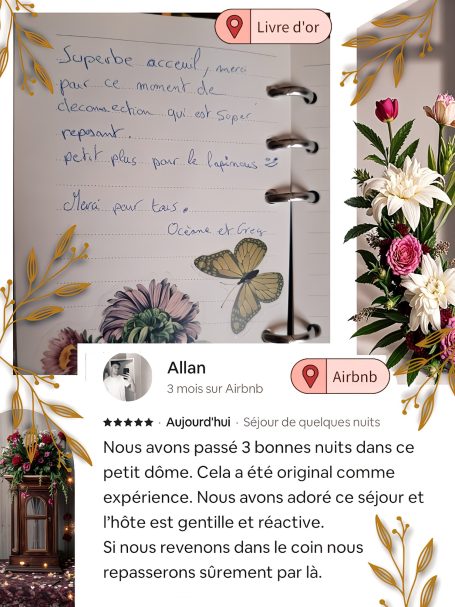 Livre d'or
Superbe acceuil, merci
pour ce moment de
deconnection qui est super
reposant.
petit plus pour le lapinous
Merci pour tous.
Océane et Greg
Allan
3 mois sur Airbnb
Airbnb
★★★★★ · Aujourd'hui · Séjour de quelques nuits
Nous avons passé 3 bonnes nuits dans ce
petit dôme. Cela a été original comme
expérience. Nous avons adoré ce séjour et
l'hôte est gentille et réactive.
Si nous revenons dans le coin nous
repasserons sûrement par là.